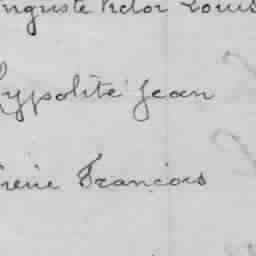 uguste Victor Louis
Hyppolite Jean
irène François